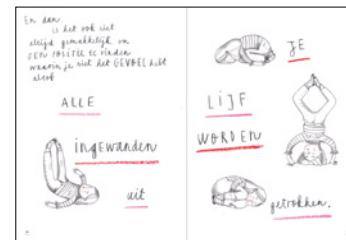 En dan
is het ook niet
altijd gemakkelijk om
EEN POSITIE te vinden
waarin je niet het GEVOEL hebt
alsof
ALLE
ingewanden
uit
JE
LIJF
WORDEN
getrokken.